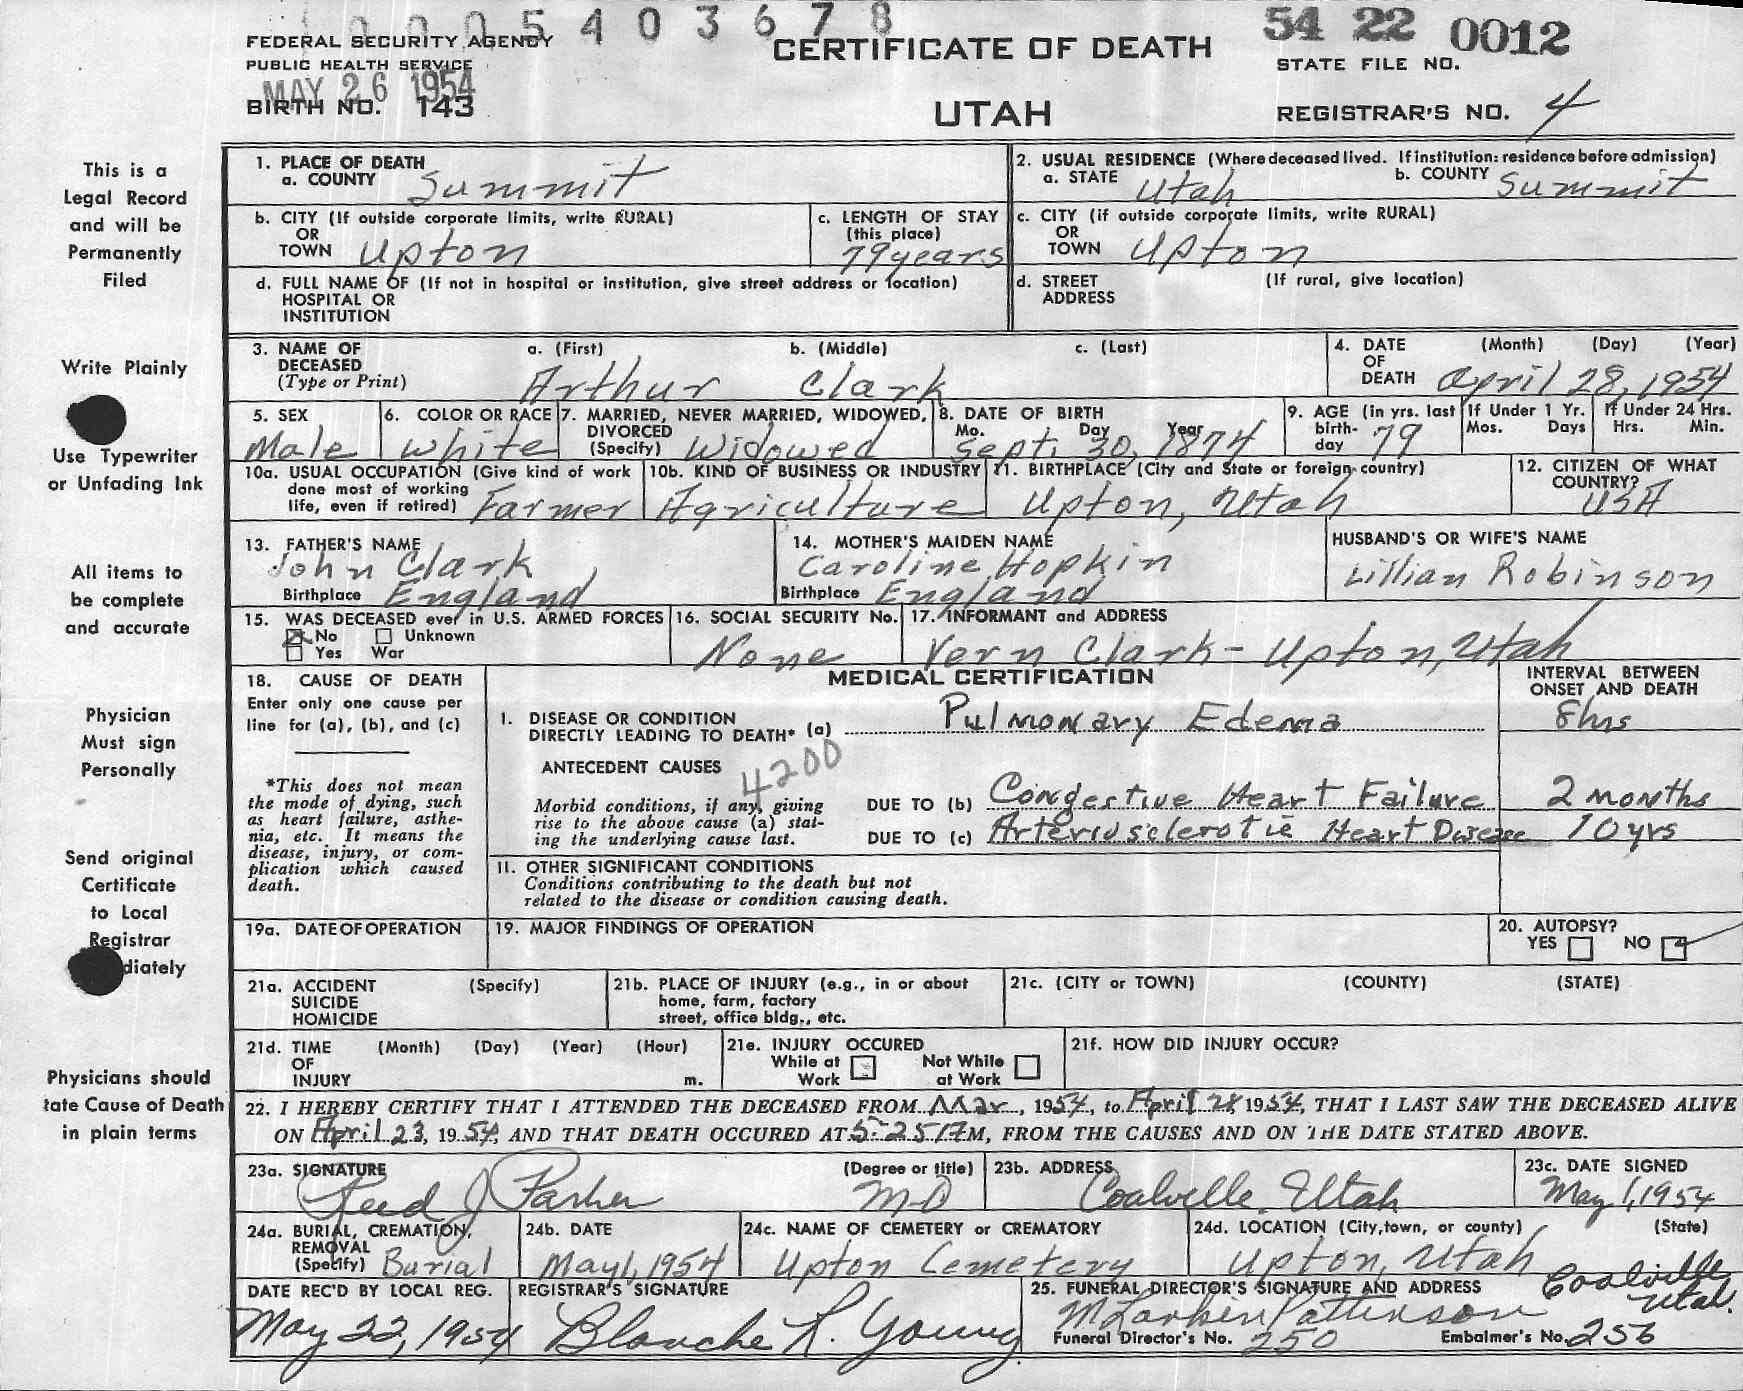 0005403678
54 22 0012
FEDERAL SECURITY AGENCY
CERTIFICATE OF DEATH
STATE FILE NO.
PUBLIC HEALTH SERVICE
MAY 26 1954
BIRTH NO. 143
UTAH
REGISTRAR'S NO. 4
This is a
Legal Record
and will be
Permanently
Filed
Write Plainly
Use Typewriter
or Unfading Ink
All items to
be complete
and accurate
Physician
Must sign
Personally
Send original
Certificate
to Local
Registrar
diately
Physicians should
tate Cause of Death
in plain terms
1. PLACE OF DEATH
a. COUNTY Summit
2. USUAL RESIDENCE (Where deceased lived. If institution: residence before admission)
a. STATE Utah b. COUNTY Summit
b. CITY (If outside corporate limits, write RURAL)
OR
TOWN Upton
c. LENGTH OF STAY
(this place)
79 years
c. CITY (if outside corporate limits, write RURAL)
OR
TOWN Upton
d. FULL NAME OF (If not in hospital or institution, give street address or location)
HOSPITAL OR
INSTITUTION
d. STREET (If rural, give location)
ADDRESS
3. NAME OF a. (First) b. (Middle) c. (Last)
DECEASED
(Type or Print) Arthur Clark
4. DATE (Month) (Day) (Year)
OF
DEATH April 28, 1954
5. SEX
Male
6. COLOR OR RACE
White
7. MARRIED, NEVER MARRIED, WIDOWED,
DIVORCED
(Specify) Widowed
8. DATE OF BIRTH
Mo. Day Year
Sept. 30, 1874
9. AGE (in yrs. last
birth-
day 79
If Under 1 Yr.
Mos. Days
If Under 24 Hrs.
Hrs. Min.
10a. USUAL OCCUPATION (Give kind of work
done most of working
life, even if retired) Farmer
10b. KIND OF BUSINESS OR INDUSTRY
Agriculture
11. BIRTHPLACE (City and State or foreign country)
Upton, Utah
12. CITIZEN OF WHAT
COUNTRY?
USA
13. FATHER'S NAME
John Clark
Birthplace England
14. MOTHER'S MAIDEN NAME
Caroline Hopkin
Birthplace England
HUSBAND'S OR WIFE'S NAME
Lillian Robinson
15. WAS DECEASED ever in U.S. ARMED FORCES
No Unknown
Yes War
16. SOCIAL SECURITY No.
None
17. INFORMANT and ADDRESS
Vern Clark - Upton, Utah
18. CAUSE OF DEATH
Enter only one cause per
line for (a), (b), and (c)
*This does not mean
the mode of dying, such
as heart failure, asthe-
nia, etc. It means the
disease, injury, or com-
plication which caused
death.
MEDICAL CERTIFICATION
INTERVAL BETWEEN
ONSET AND DEATH
I. DISEASE OR CONDITION
DIRECTLY LEADING TO DEATH* (a) Pulmonary Edema 8 hrs
ANTECEDENT CAUSES 4200
Morbid conditions, if any, giving
rise to the above cause (a) stat-
ing the underlying cause last.
DUE TO (b) Congestive Heart Failure 2 months
DUE TO (c) Arteriosclerotic Heart Disease 10 yrs
II. OTHER SIGNIFICANT CONDITIONS
Conditions contributing to the death but not
related to the disease or condition causing death.
19a. DATE OF OPERATION
19. MAJOR FINDINGS OF OPERATION
20. AUTOPSY?
YES NO
21a. ACCIDENT (Specify)
SUICIDE
HOMICIDE
21b. PLACE OF INJURY (e.g., in or about
home, farm, factory
street, office bldg., etc.
21c. (CITY or TOWN) (COUNTY) (STATE)
21d. TIME (Month) (Day) (Year) (Hour)
OF
INJURY m.
21e. INJURY OCCURED
While at Not While
Work at Work
21f. HOW DID INJURY OCCUR?
22. I HEREBY CERTIFY THAT I ATTENDED THE DECEASED FROM Mar, 1954, to April 28 1954, THAT I LAST SAW THE DECEASED ALIVE
ON April 23, 1954, AND THAT DEATH OCCURED AT 5:25 M, FROM THE CAUSES AND ON THE DATE STATED ABOVE.
23a. SIGNATURE (Degree or title)
Reed J Parker M-D
23b. ADDRESS
Coalville, Utah
23c. DATE SIGNED
May 1, 1954
24a. BURIAL, CREMATION,
REMOVAL
(Specify) Burial
24b. DATE
May 1, 1954
24c. NAME OF CEMETERY or CREMATORY
Upton Cemetery
24d. LOCATION (City, town, or county) (State)
Upton, Utah
DATE REC'D BY LOCAL REG.
May 22, 1954
REGISTRAR'S SIGNATURE
Blanche R. Young
25. FUNERAL DIRECTOR'S SIGNATURE AND ADDRESS Coalville
Utah.
M Larkin Pattinson
Funeral Director's No. 250 Embalmer's No. 256